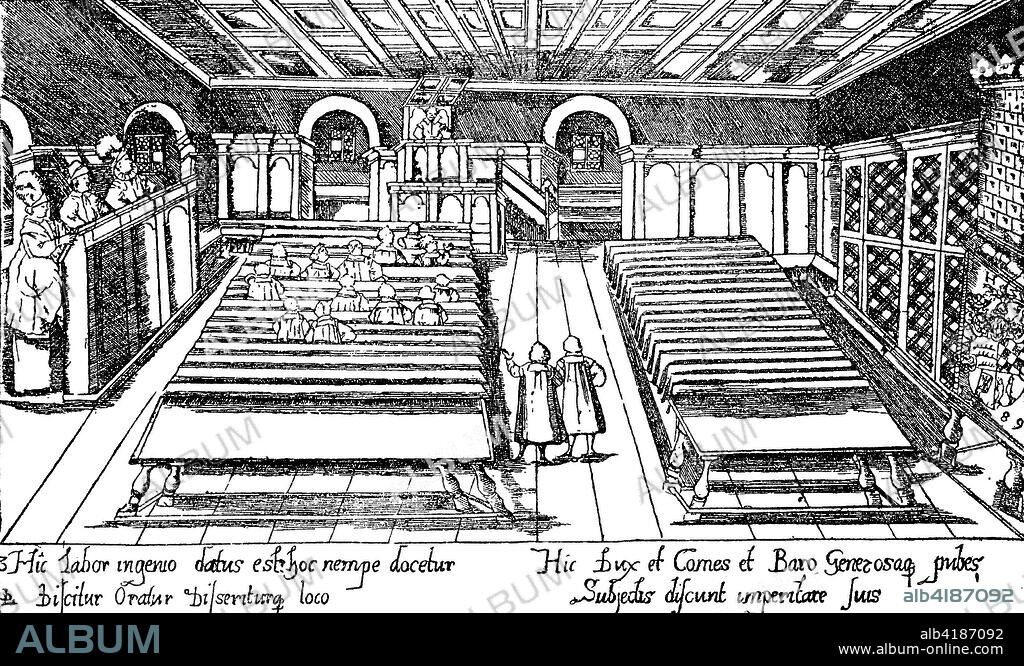 89
Hic Labor ingenio datus est: hoc nempe docetur
Discitur Oratur Disseriturq loco
Hic Dux et Comes et Baro Generosaq pubes
Subjectis discunt imperitare suis
alb4187092
ALBUM
alb4187092
www.album-online.com